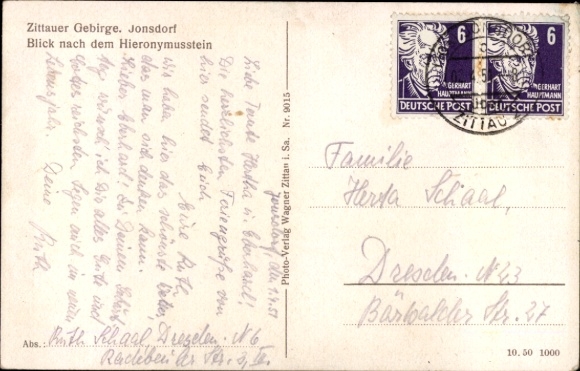 Zittauer Gebirge. Jonsdorf
Blick nach dem Hieronymusstein
Jonsdorf, den 1.7.51
Liebe Tante Hertha u. Eberhard!
Die herzlichsten Feriengrüße von
hier sendet Euch
Eure Ruth.
Wir haben hier das schönste Wetter,
das man sich denken kann.
Lieber Eberhard! Zu Deinem
wünsch ich Dir alles Gute und
Gottes reichsten Segen auch im neuen
Lebensjahr. Deine Ruth
Abs.: Ruth Schaal, Dresden N 6
Radebeuler Str.
Photo-Verlag Wagner Zittau i. Sa. Nr. 9015
6
GERHART
HAUPTMANN
DEUTSCHE POST
6
GERHART
HAUPTMANN
DEUTSCHE POST
ZITTAU
Familie
Herta Schaal,
Dresden. N 23
Str. 27
10.50 1000